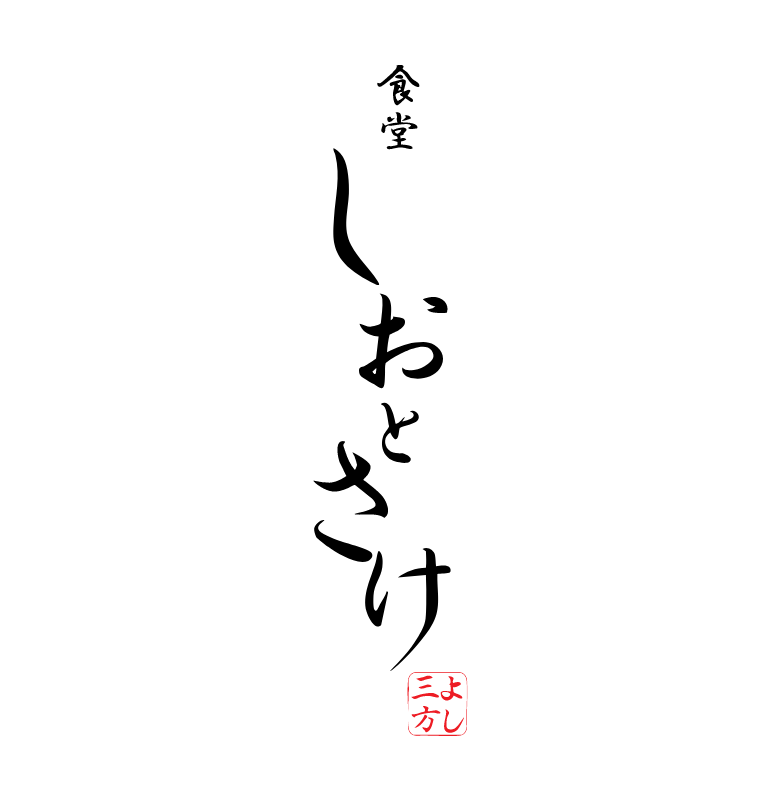 食堂
しおとさけ
よし
三方